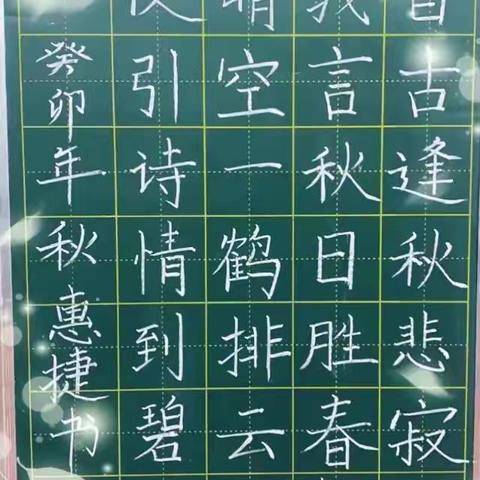 自古逢秋悲寂
我言秋日胜春
晴空一鹤排云
便引诗情到碧
癸卯年秋惠捷书